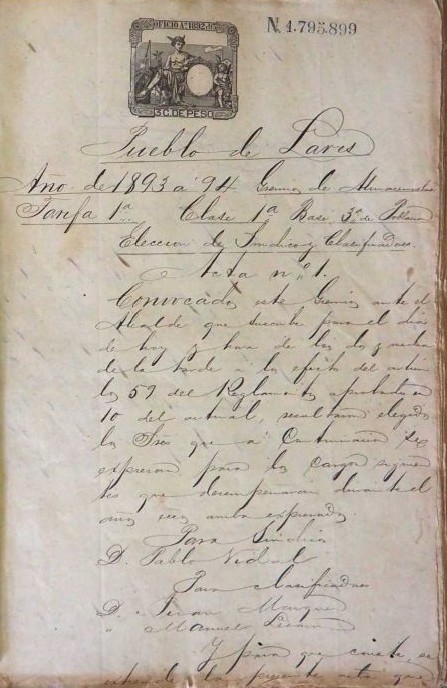 OFICIO Aº 1892-93
3 C. DE PESO
N. 1.795.899
Pueblo de Lares
Año de 1893 á 94 Gremio de Almacenistas
Tarifa 1ª Clase 1ª Base 3ª de Poblacion
Eleccion de Sindico y Clasificadores.
Acta nº 1.
Convocado este Gremio ante el
Alcalde que suscribe para el dia
de hoy y hora de las dos y media
de la tarde á los efectos del articu
lo 59 del Reglamento aprobado en
10 del actual, resultaron elegidos
los Sres que á continuacion se
expresan para los cargos siguien
tes que desempeñaran durante el
año arriba expresado.
Para Sindico
D. Pablo Vidal
Para clasificadores
D. Juan Marquez
" Manuel
Y para que conste, se
extiende la presente acta que